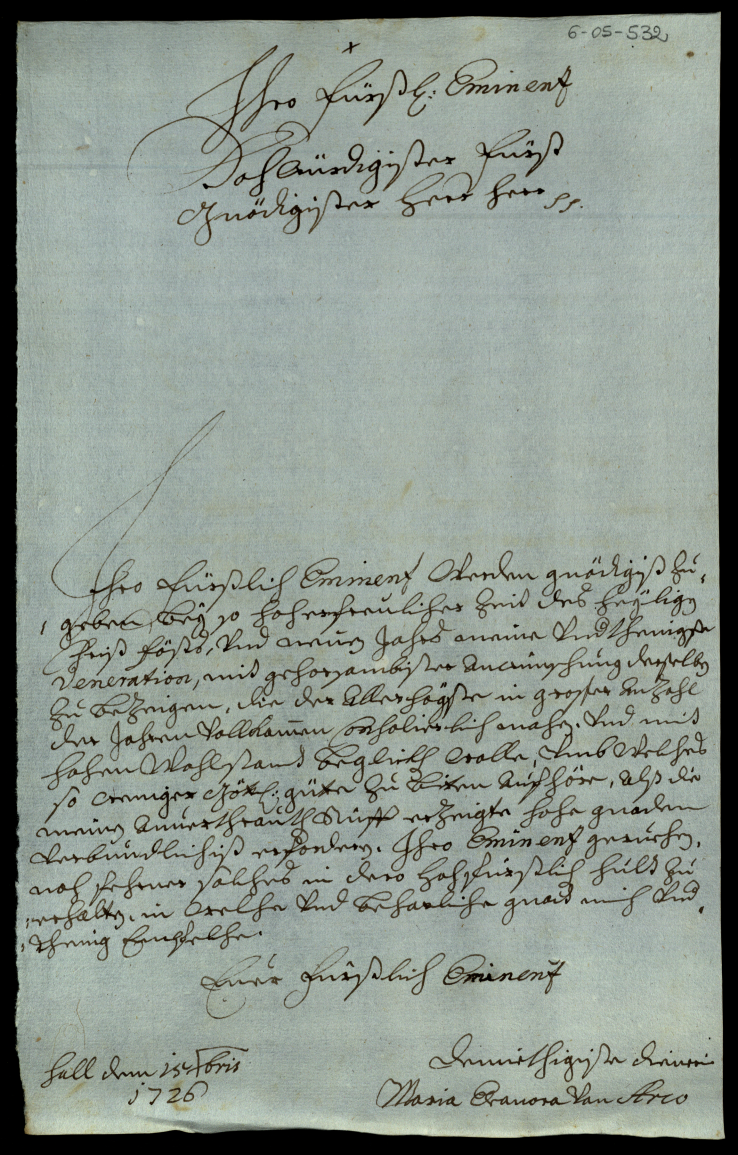 6-05-532
Ihro Fürstl: Eminenz
Hochwürdigister Fürst
Gnädigister Herr Herr
Ihro Fürstlich Eminenz Werden gnädigist zu,
geben, bey so hocherfreulicher Zeit des heyligen
Christ fösts, Vnd neuen Jahrs meine Vndthenigste
Veneration, mit gehorsambister anwünschung derselben
zu bezeigen, die der Allerhögste in grosser anzahl
der Jahren Vollkommen nahen, Vnd mit
hohen Wohlstand beglickh Wolle, Vmb Welches
so weniger Götl: güte zu bitten aufhöre, alß die
meinen anverthrauth Stüfft erzeigte hohe gnaden
Verbundlichist erfordern. Ihro Eminenz geruhen,
noch fehrner solches in dero Hochfürstlich huld zu
erhalten, in Welche Vnd beharliche gnad mich Vnd,
thenig Empfelhe.
Euer Fürstlich Eminenz
Hall den 15 Xbris
1726
Demiethigiste dienerin
Maria Eleanora Von Arco